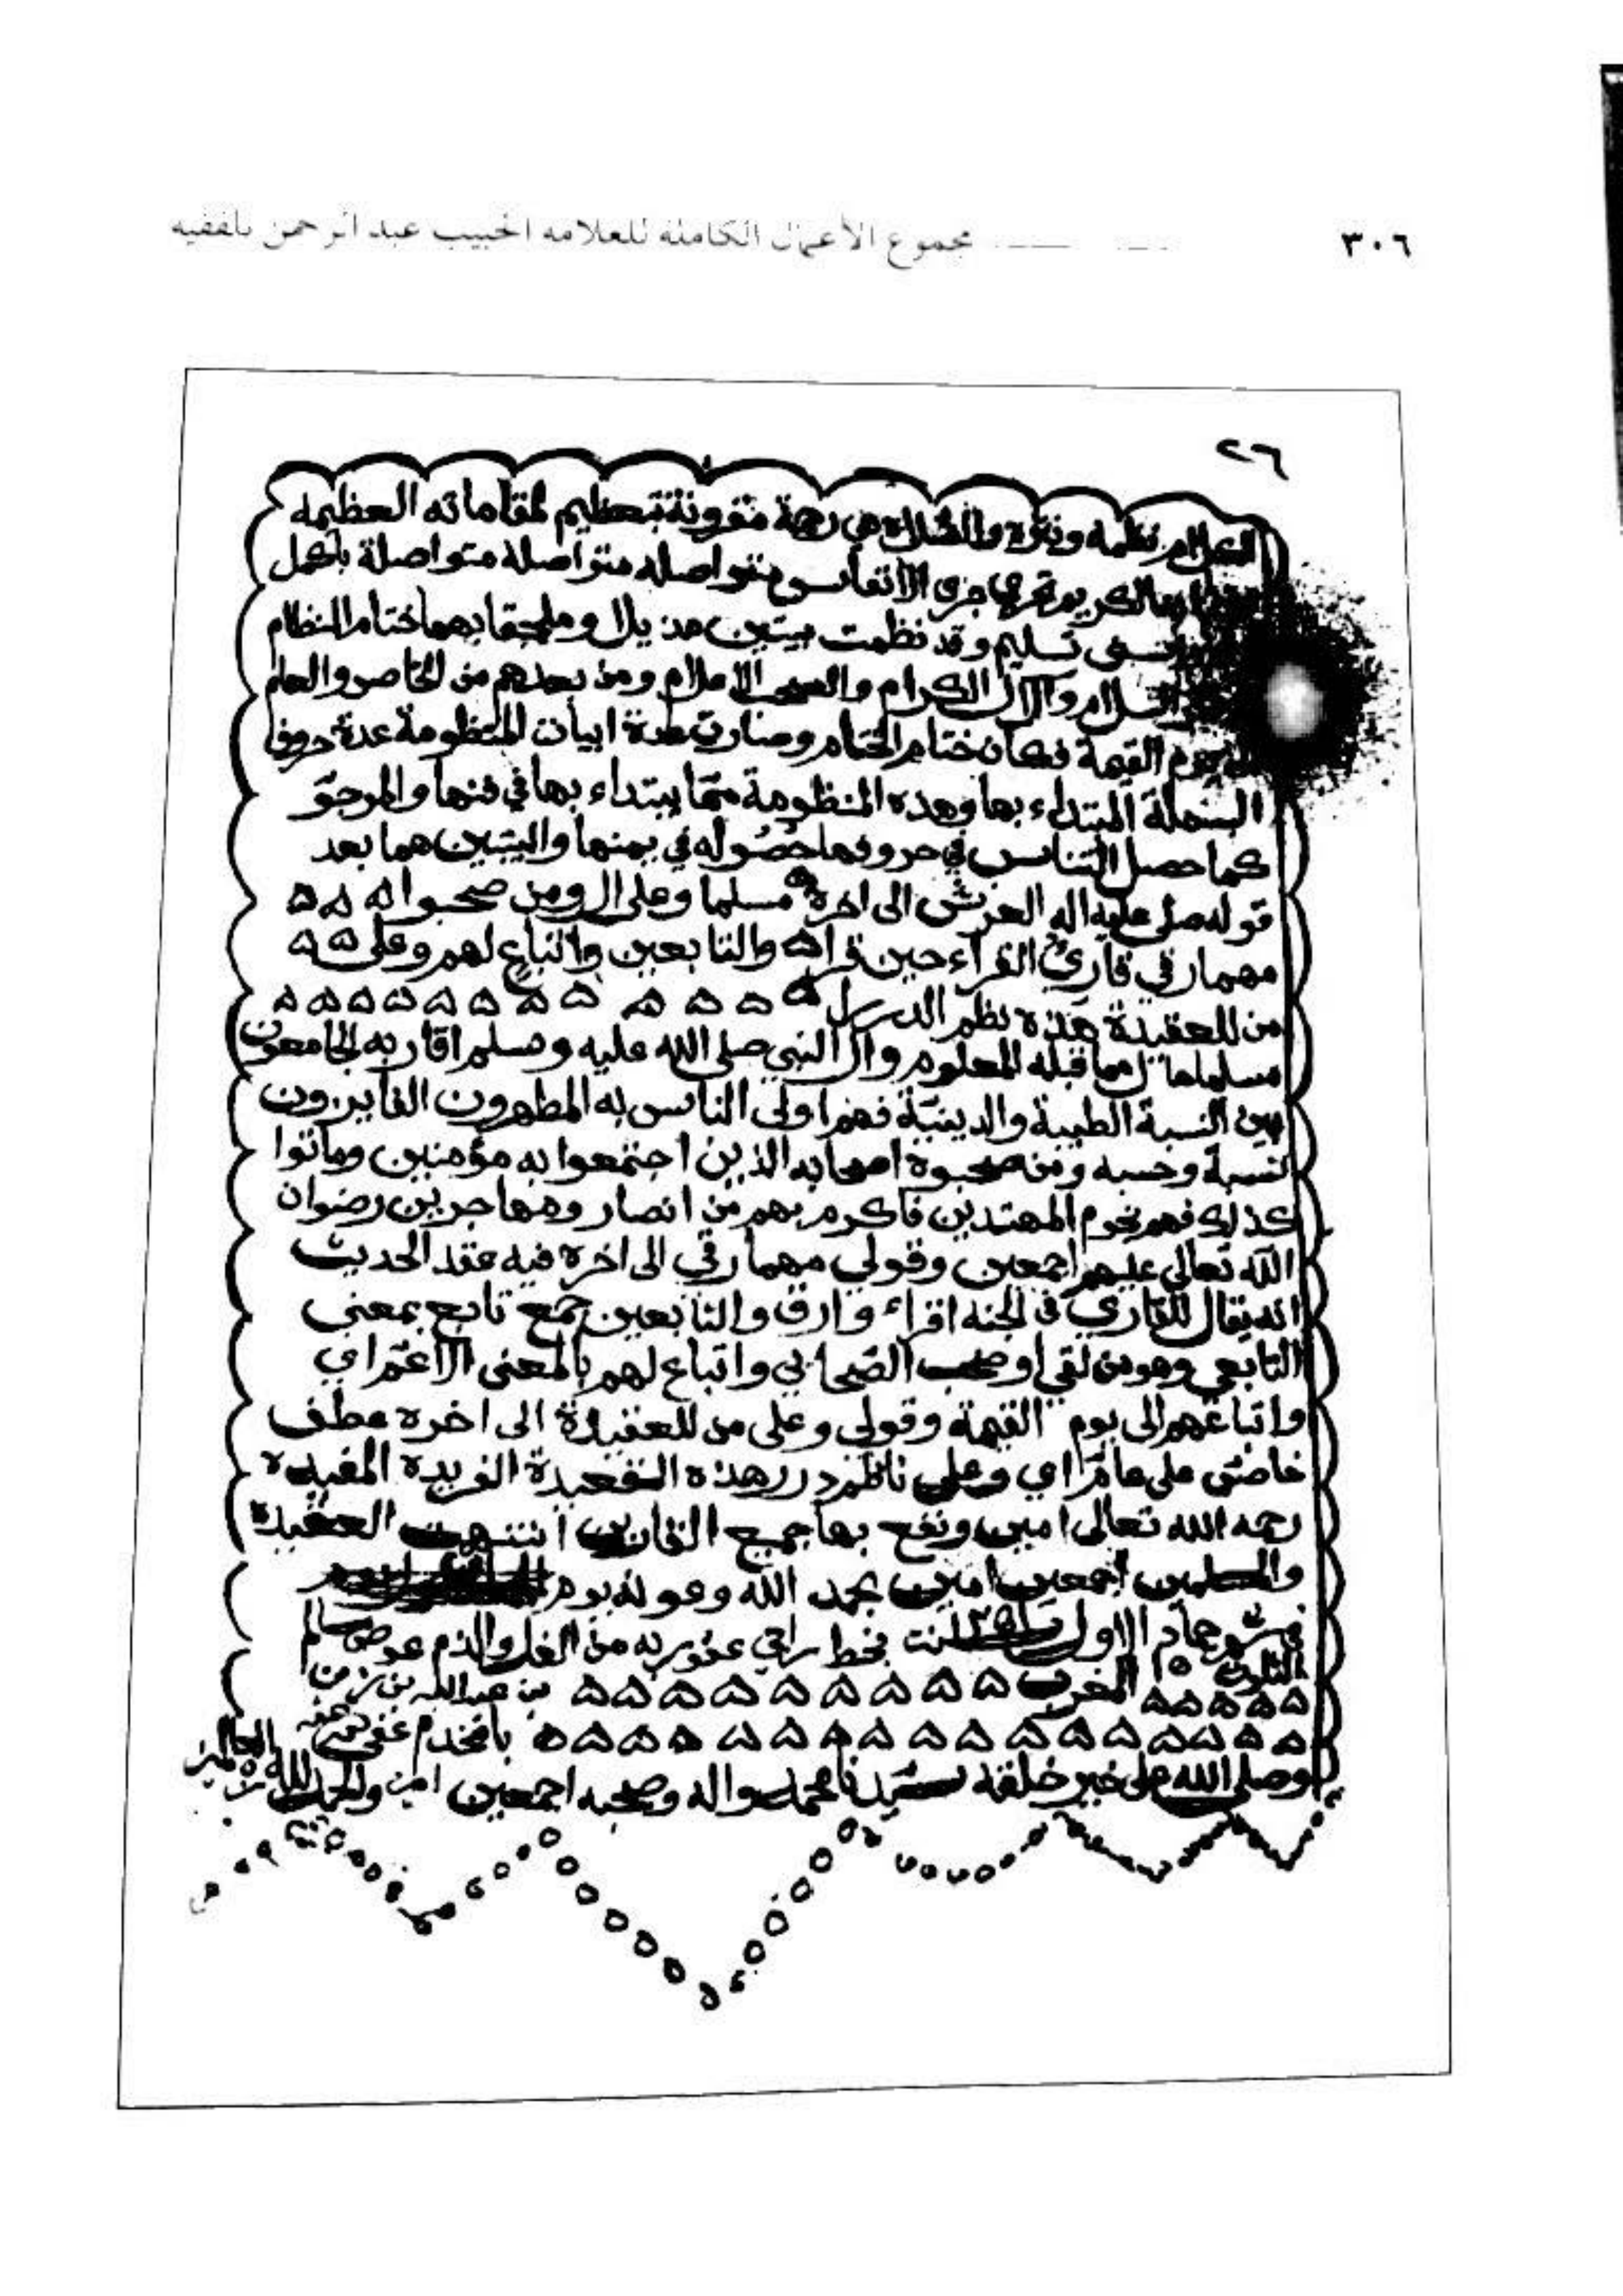 ٣٠٦
مجموع الأعمال الكاملة للعلامة الحبيب عبد الرحمن بلفقيه
٢٦
نظمه ونثره والصلاة هي رحمة مقرونة بتعظيم لمقاماته العظيمه
الكريم تجري جري الانفاس متواصله متواصلة بأكمل
تسليم وقد نظمت بيتين مذيلا وملحقا بهما ختام النظام
السلام والآل الكرام والصحب الاعلام ومن بعدهم من الخاص والعام
يوم القيمة فكان ختام الختام وصارت عدة ابيات المنظومة عدة حروف
البسملة المبتداء بها وهذه المنظومة مما يبتداء بها في فنها والمرجو
كما حصل التناسب في حروفها حصوله في يمنها والبيتين هما بعد
قوله صلى عليه اله العرش الى اخره مسلما وعلى ال ومن صحبوا
مهما رقي قاري القراء حين قراه والتابعين واتباع لهم وعلى
من للعقيدة هذه نظم الدرر
مسلما مما قبله المعلوم وآل النبي صلى الله عليه وسلم اقاربه الجامعون
بين النسبة الطيبة والدينية فهم اولى الناس به المطهرون الفايزون
نسبة وحسبه ومن صحبوه اصحابه الذين اجتمعوا به مؤمنين وماتوا
كذلك فهم نجوم المهتدين فاكرم بهم من انصار ومهاجرين رضوان
الله تعالى عليهم اجمعين وقولي مهما رقي الى اخره فيه عقد الحديث
انه يقال للقاري في الجنه اقراء وارق والتابعين جمع تابع بمعنى
التابعي وهو من لقي او صحب الصحابي واتباع لهم بالمعنى الاعم اي
واتباعهم الى يوم القيمة وقولي وعلى من للعقيدة الى اخره عطف
خاص على عام اي وعلى ناظم درر هذه القصيدة الفريدة المفيده
رحمه الله تعالى امين ونفع بها جميع انتهت العقيدة
والمسلمين اجمعين امين بحمد الله وعونه يوم
شهر جماد الاول بخط راجي عفو ربه من والذم عوض سالم
الثلوث المغرب بن عبدالله بن زين
بامخدم عفي عنه
وصلى الله على خير خلقه سيدنا محمد واله وصحبه اجمعين امين والحمد لله رب العالمين